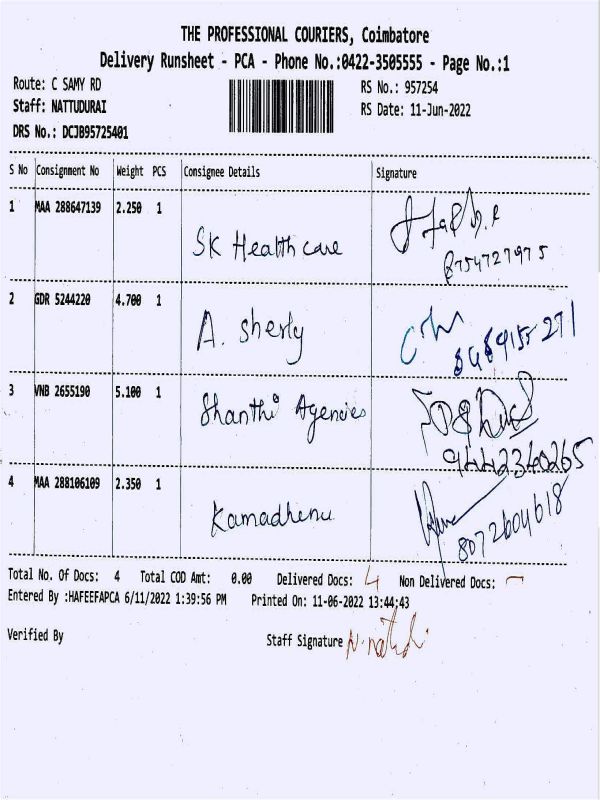 THE PROFESSIONAL COURIERS, Coimbatore
Delivery Runsheet - PCA - Phone No.:0422-3505555 - Page No.:1
Route: C SAMY RD
RS No.: 957254
Staff: NATTUDURAI
RS Date: 11-Jun-2022
DRS No.: DCJB95725401
S No Consignment No Weight PCS Consignee Details Signature
1 MAA 288647139 2.250 1
SK Health care
8754727975
2 GDR 5244220 4.700 1
A. Sherly
3 VNB 2655190 5.100 1
Shanthi Agencies
9442340265
4 MAA 288106109 2.350 1
Kamadhenu
8072604618
Total No. Of Docs: 4 Total COD Amt: 0.00 Delivered Docs: 4 Non Delivered Docs: -
Entered By :HAFEEFAPCA 6/11/2022 1:39:56 PM Printed On: 11-06-2022 13:44:43
Verified By Staff Signature